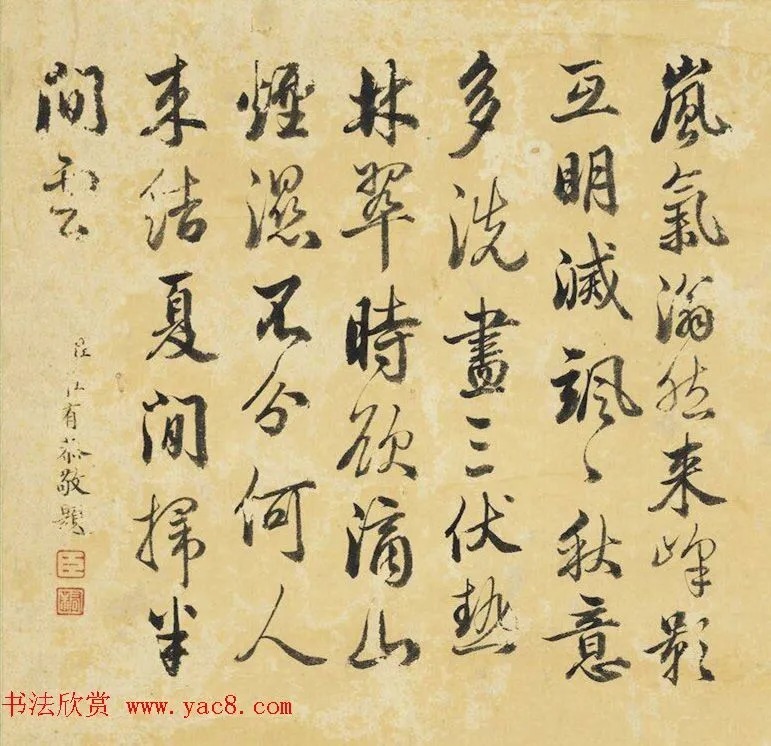 嵐氣滃然来峰影
互明滅颯〻秋意
多洗盡三伏热
林翠時欲滴山
煙濕不分何人
来結夏閒掃半
間雲
臣 有恭敬題
臣
书法欣赏 www.yac8.com